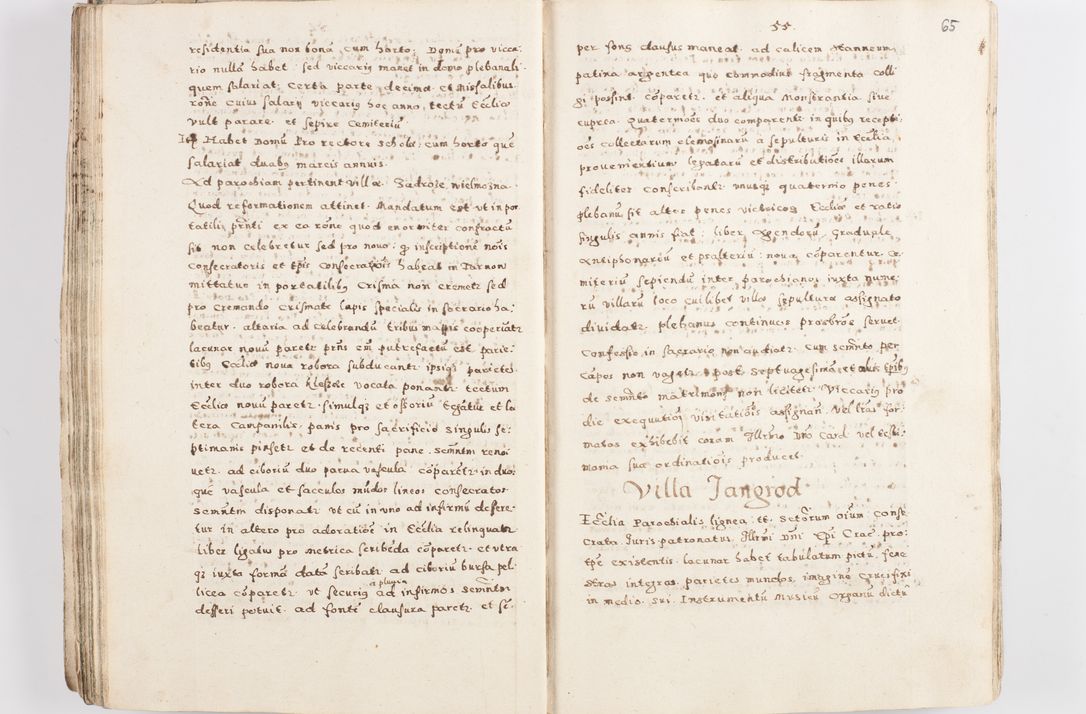 residentia sua non bona cum horto; Domū pro vicca:
rio nullā habet. sed viccariꝯ manet in domo plebanali.
quem salariat certa parte decimæ et Missalibus.
rōne cuius salarij viccariꝯ hoc anno tectū Eccliæ
vult parare. et sepire Cemiteriū
Itē Habet Domū Pro rectore scholæ cum horto quē
salariat duabꝯ marcis annuis.
Ad parochiam pertinent villæ. Zadroże, wielmożna.
Quod reformationem attinet. Mandatum est vt in por
tatili prūti ex ea rōne quod enormiter confractū
sit non celebretur sed pro nouo: inscriptionē nōis
Consecratoris et tp̄is consecratiōis habeat in Tarnow
mittatur in portatilibꝯ Crisma non cremetr sed
pro cremando Crismate lapis specialis in sacrario ha:
beatur. altaria ad celebrandū tribus mappis cooperiātr
lacunar nouū paretr prn̄s em̄ putrefactū est parie:
tibꝯ Eccliæ noua robora subducantr ipsiqꝫ parietes
inter duo robora kleszcze vocata ponantr tectum
Eccliæ nouū paretr. simulqꝫ et ossoriū tegatur et la
tera Campanilis, panis pro sacrificio singulis se:
ptimanis pinsetr et de recenti pane semn̄tm reno
uetr. ad ciboriū duo parua vascula cōparētr in duo
quē vascula et sacculos mūdos lineos consecratos
semn̄tm disponatr vt cū in vno ad infirmū deffere:
tur in altero pro adoratiōe in Ecclia relinquatr
liber ligatꝯ pro Metrica scribēda cōparetr. et vtra
qꝫ iuxta formā datā scribatr ad ciboriū bursa pel:
licea cōparetr vt securius ad infirmos semn̄tm
a pluuia
defferi potuit. ad fontē clausura paretr et sē:
55.
65
per fons clausus maneat. ad calicem stanneum
patina argentea quo commodius fragmenta colli
gi possint cōparetr. et aliqua Monstrantia siue
cuprea. Quaterniōes duo comparentr in quibꝯ recepti
ōes collectarum elemosinarū a sepulturis in Ecclia
prouenientium legatarū et distributiōes illarum
fideliter conscribantr vnusqꝫ quaternio penes
plebanū sit alter penes victricos Eccliæ et ratio
singulis annis fiat: liber Agendorū, Graduale
Antiphonariū et psalteriū: noua cōparentur. Ce
miteriū sepiendū inter parochianos iuxta nume:
rū villarū loco cuilibet villæ sepultura assignato
diuidatr. plebanus continuos prœsbr̄os seruet.
Confessio in sacrario non audiatr. Cum semn̄to per
Cāpos non vagetr post septuagesimā et alijs tp̄ibꝯ
de semn̄to matrimonij non licitetr. Viccariꝯ pro
die exequutiōi visitatiōis assignan̄ vel lr̄as for:
matas exhibebit coram Illrmo Dn̄o Card vel testi:
monia suæ ordinatiōis producet.
Villa Jangrod
Ecclia Parochialis lignea tt. Sctōrum oīum Conse
crata. Juris patronatus Illrmi Dn̄i Epi Crac. pro:
tp̄e existentis. lacunar habet tabulatum pictū, fene
stras integras, parietes mundos, imaginē Crucifixi
in medio sui. Instrumentū Musicū Organū dictū